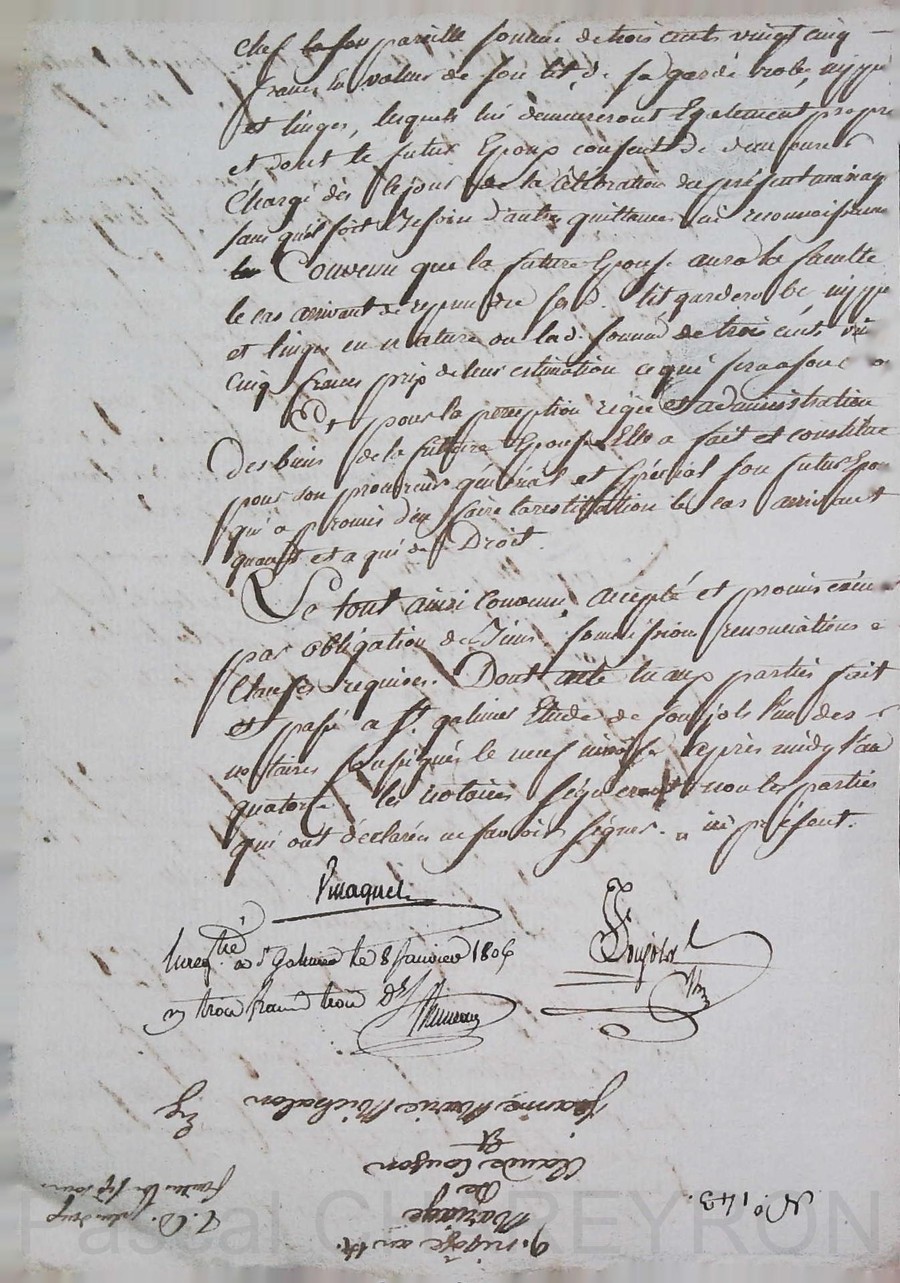 chef la so[n] pareille somme de trois cents vingt cinq
francs la valeur de son lit, de sa garde robe, nippe
et linges, lesquels lui demeureront Egalement propre
et dont le futur Epoux consent de demeurer
Chargé dès le jour de la Célébration du présent mariag
sans qu'il soit Besoin d'autre quittance ni reconnoissance
Convenu que la future Epouse aura la faculté
le cas arrivant de reprendre ses d. lit garderobe nippe
et linge en nature ou lad. somme de trois cents vin
cinq francs prix de leur estimation ce qui sera a son
Et pour la perception régie et administration
des biens de la future Epouse Elle a fait et constitué
pour son procureur général et spécial son futur Epou
qui a promis d'en faire la restitution le cas arrivant
quand et a qui de Droit.
Le tout ainsi Convenu, accepté et promis exécu
par obligation de Biens soumissions renonciations
Clauses requises. Dont acte lu aux parties fait
et passé a St. galmier Etude de Soujols l'un des
notaires soussignés le neuf nivose après midy l'an
quatorze les notaires signeront non les parties
qui ont déclaré ne savoir signer. ici présent.
Pinaquel
Soujols
Enregtré a St Galmier le 8 Janvier 1806
trois francs trois Ds
N.º 143.
9. nivose an 14.
Mariage
De
Claude Couzon
Et
Jeanne Marie Michalon
Pascal CHAREYRON